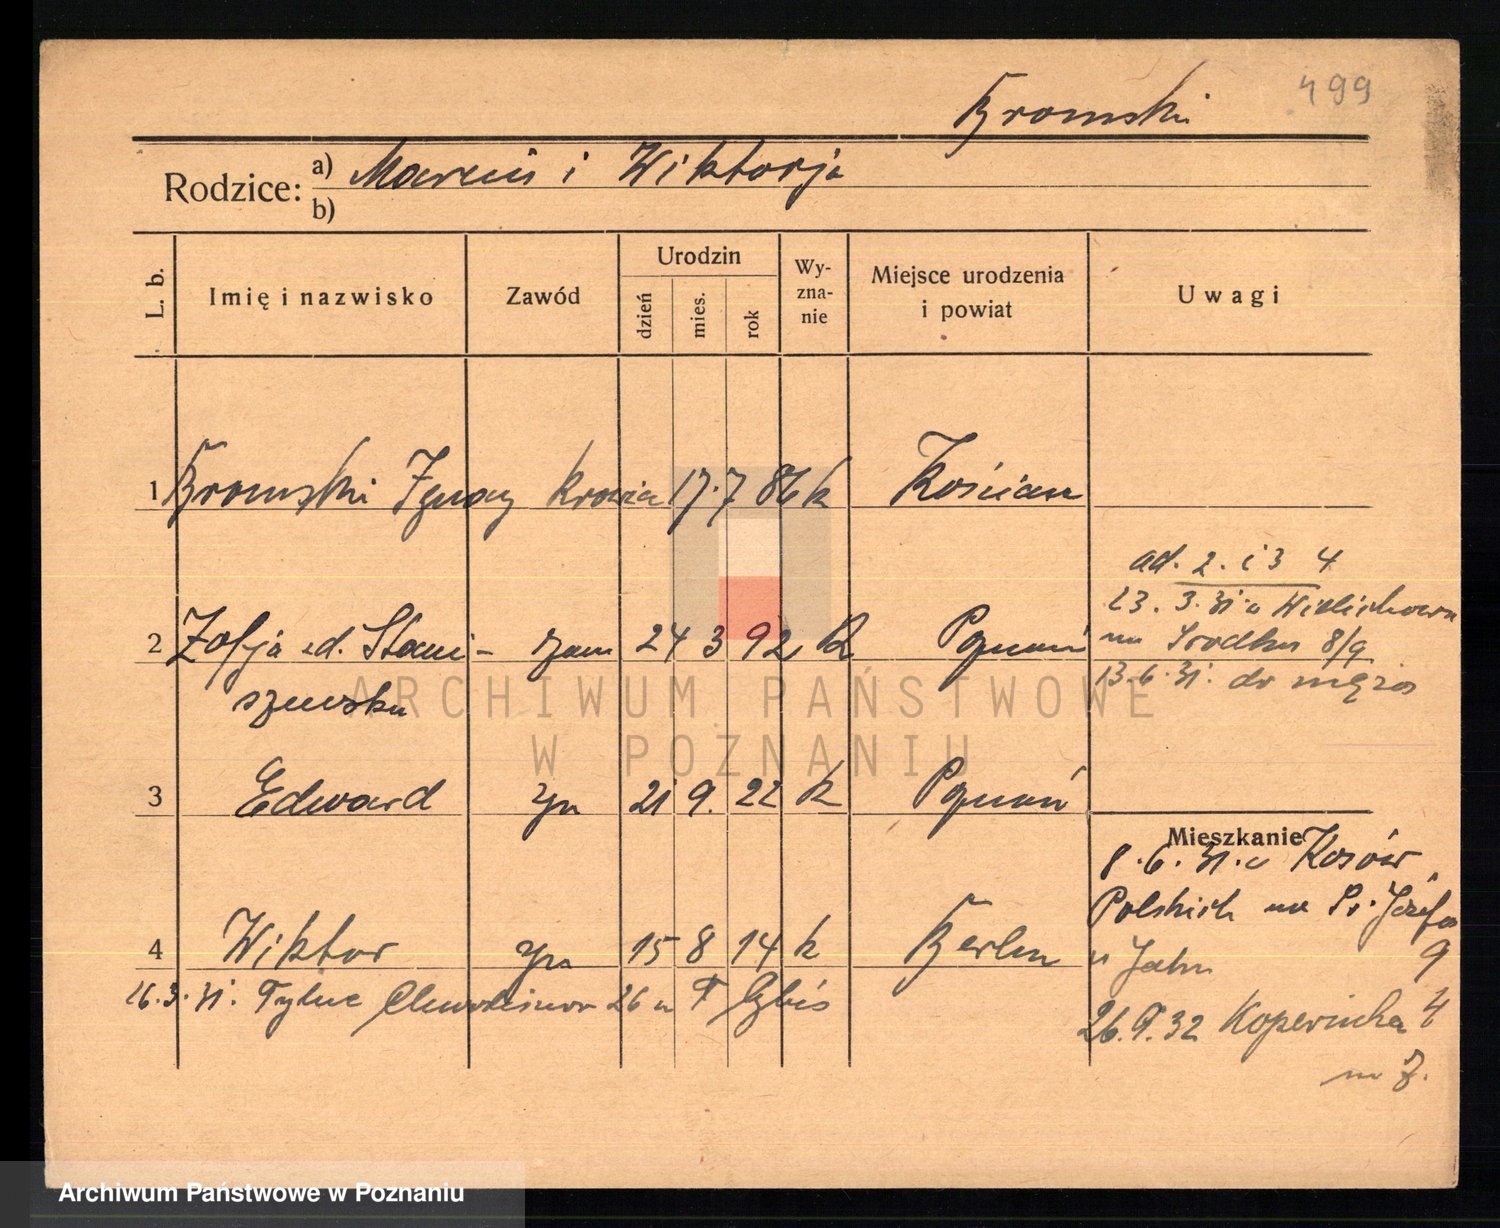 499
Bromski
Rodzice: a) Marcin i Wiktorja
b)
L. b.
Imię i nazwisko
Zawód
Urodzin
dzień
mies.
rok
Wy-
zna-
nie
Miejsce urodzenia
i powiat
Uwagi
1 Bromski Ignacy 17. 7 86 k Kościan
ad. 2. i 3 4
23. 3. 31. u
na Środku 8/9
2 Zofja zd. Stani- 24 3 92 k Poznań
szewska
13. 6. 31. do męża
3 Edward 21 9. 22 k Poznań
Mieszkanie
8. 6. 31. u
na Św. Józefa
9
4 Wiktor 15 8 14 k Berlin
u
16. 3. 31. 26 u
26. 9. 32 Kopernika 4
ARCHIWUM PAŃSTWOWE
W POZNANIU
Archiwum Państwowe w Poznaniu